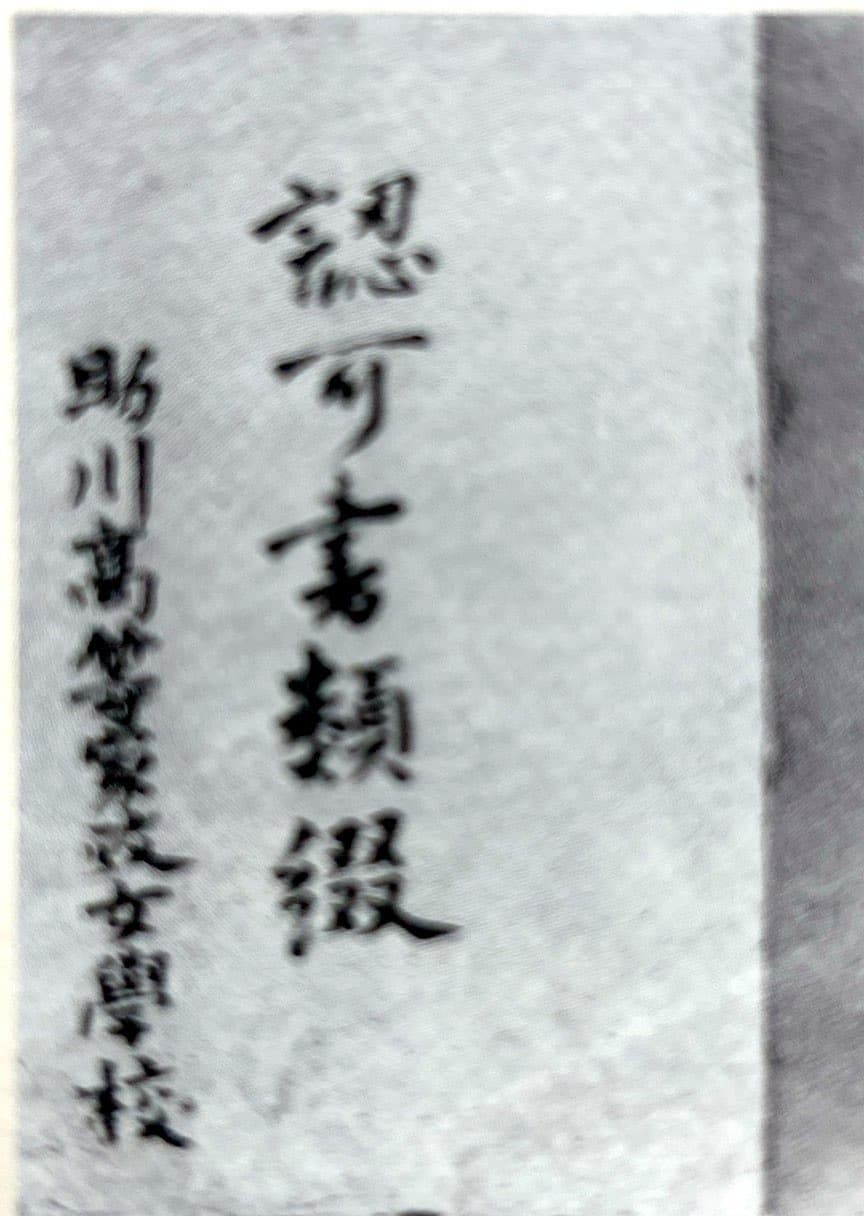 認可書類綴
助川高等家政女學校